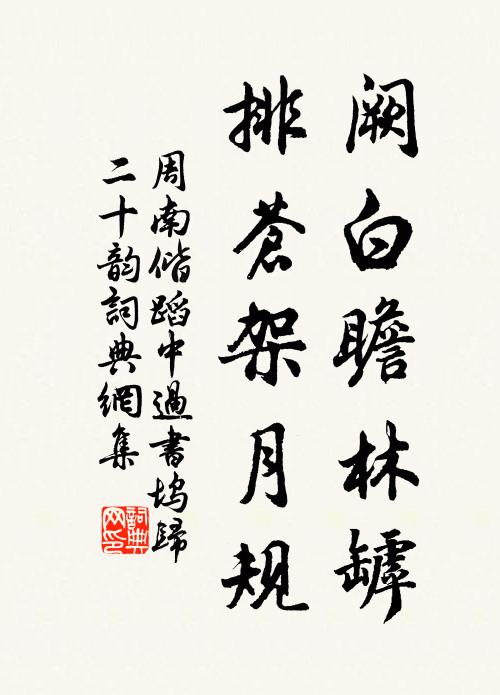 阙白瞻林罅
排蒼架月規
周南偕蹈中過書坞歸
二十韵詞典網集
詞典网印